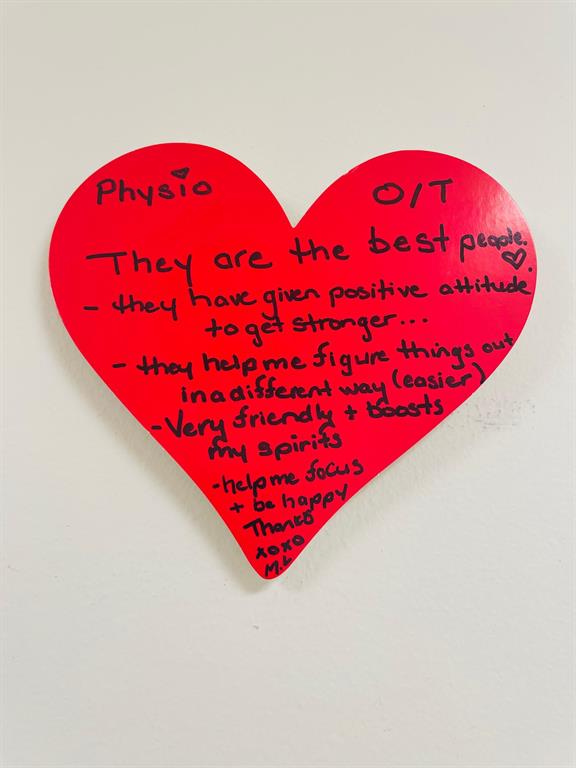 Physio O/T
They are the best people.
- they have given positive attitude.
to get stronger...
- they help me figure things out
in a different way (easier)
- Very friendly + boosts
my spirits
- help me focus
+ be happy
Thanks
xoxo
M.L